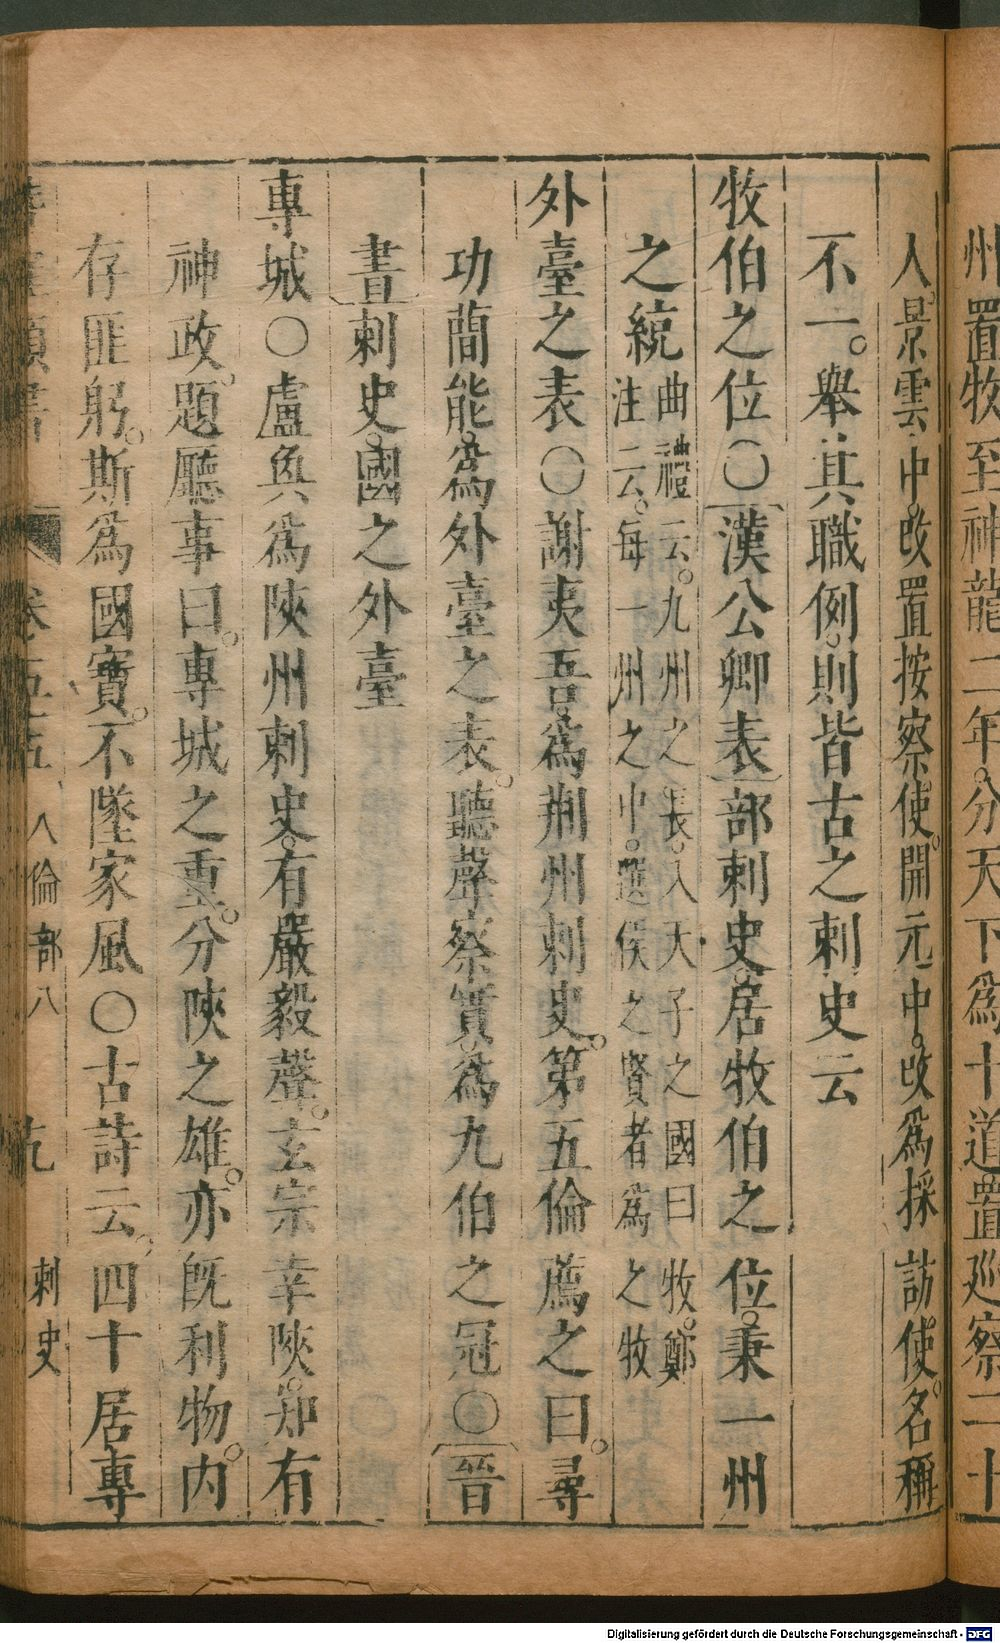 州置牧至神龍二年。分天下為十道置巡察二十
人。景雲中。改置按察使。開元中。改為採訪使。名稱
不一。舉其職例。則皆古之刺史云
牧伯之位〇漢公卿表部刺史。居牧伯之位。秉一州
之統曲禮云。九州之長。入天子之國曰牧。鄭
注云。每一州之中。選侯之賢者為之牧
外臺之表〇謝夷吾。為荆州刺史。第五倫薦之曰。尋
功蕳能。為外臺之表。聽聲察實為九伯之冠〇晉
書刺史。國之外臺
專城〇盧奐為陝州刺史。有嚴毅聲。玄宗幸陝。知有
神政。題廳事曰。專城之重。分陝之雄。亦既利物。内
存匪躬。斯為國寶。不墜家風〇古詩云。四十居專
卷五十五 人倫部八 九 刺史
Digitalisierung gefördert durch die Deutsche Forschungsgemeinschaft - DFG